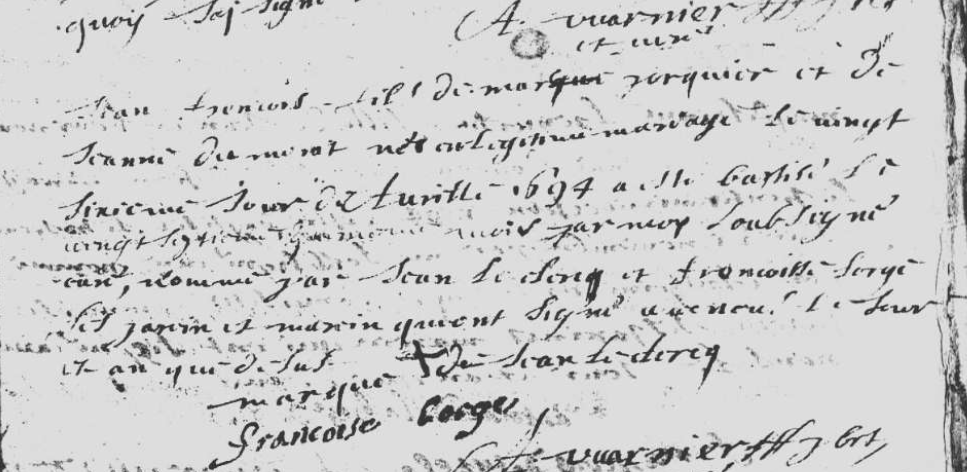 quoy j'ay signé
A. vuarnier pbre
et curé
Jean francois fils de marque jorquier et de
Jeanne du mont nés en legitime mariage le vingt
sixieme jour de Juillé 1694 a esté baptisé le
vingt septieme du mesme mois par moy soubsigné
curé, nommé par Jean le clercq et francoisse
ses parin et marin qui ont signé avec le jour
et an que desus
marque + de Jean le clercq
francoise
A. vuarnier pbre